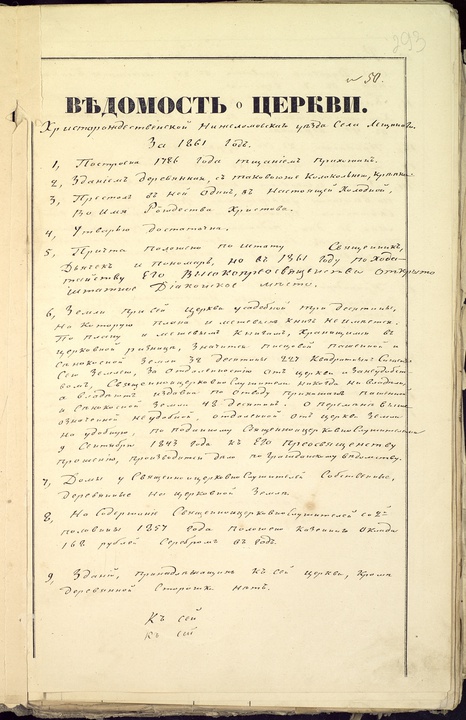 293
№ 50.
ВѢДОМОСТЬ о ЦЕРКВИ.
Христорождественской Нижнеломовскаго уѣзда Села Мщаниот
За 1861 Годъ.
1, Построена 1786 года тщаніемъ прихожанъ.
2, Зданіемъ деревянная, съ таковою же колокольнею, крѣпка.
3, Престолъ въ ней одинъ, въ настоящей холодной,
во имя Рождества Христова.
4, Утварью достаточна.
5, Причта положено по штату Священникъ,
Дьячекъ и пономарь, но въ 1861 году по хода-
тайству Его Высокопреосвященства открыто
штатное Діаконское мѣсто.
6, Земли при сей Церкви усадебной три десятины,
на которую плана и межевыхъ книгъ не имѣется.
По плану и межевымъ книгамъ, хранящимся въ
церковной ризницѣ, значится писцовой пашенной и
сѣнокосной Земли 38 десятинъ 227 квадратныхъ Сажень
Сею Землею, за отдаленностію отъ церкви и
вомъ, Священноцерковнослужители никогда не владѣли,
а владѣютъ издавна по отводу прихожанъ пашенной
и сѣнокосной Земли 48 десятинъ. О перемѣнѣ выше
означенной неудобной, отдаленной отъ церкви Земли
на удобную, по поданному Священноцерковнослужителями
9 Сентября 1843 года къ Его Преосвященству
прошенію, производится дѣло по гражданскому вѣдомству.
7, Домы у Священноцерковнослужителей собственные,
деревянные на церковной Землѣ.
8, На содержаніе Священноцерковнослужителей со 2й
половины 1857 года положено казеннаго оклада
168 рублей Серебромъ въ годъ.
9, Зданій, принадлежащихъ къ сей церкви, кромѣ
деревянной Сторожки нѣтъ.
Къ сей
къ сей